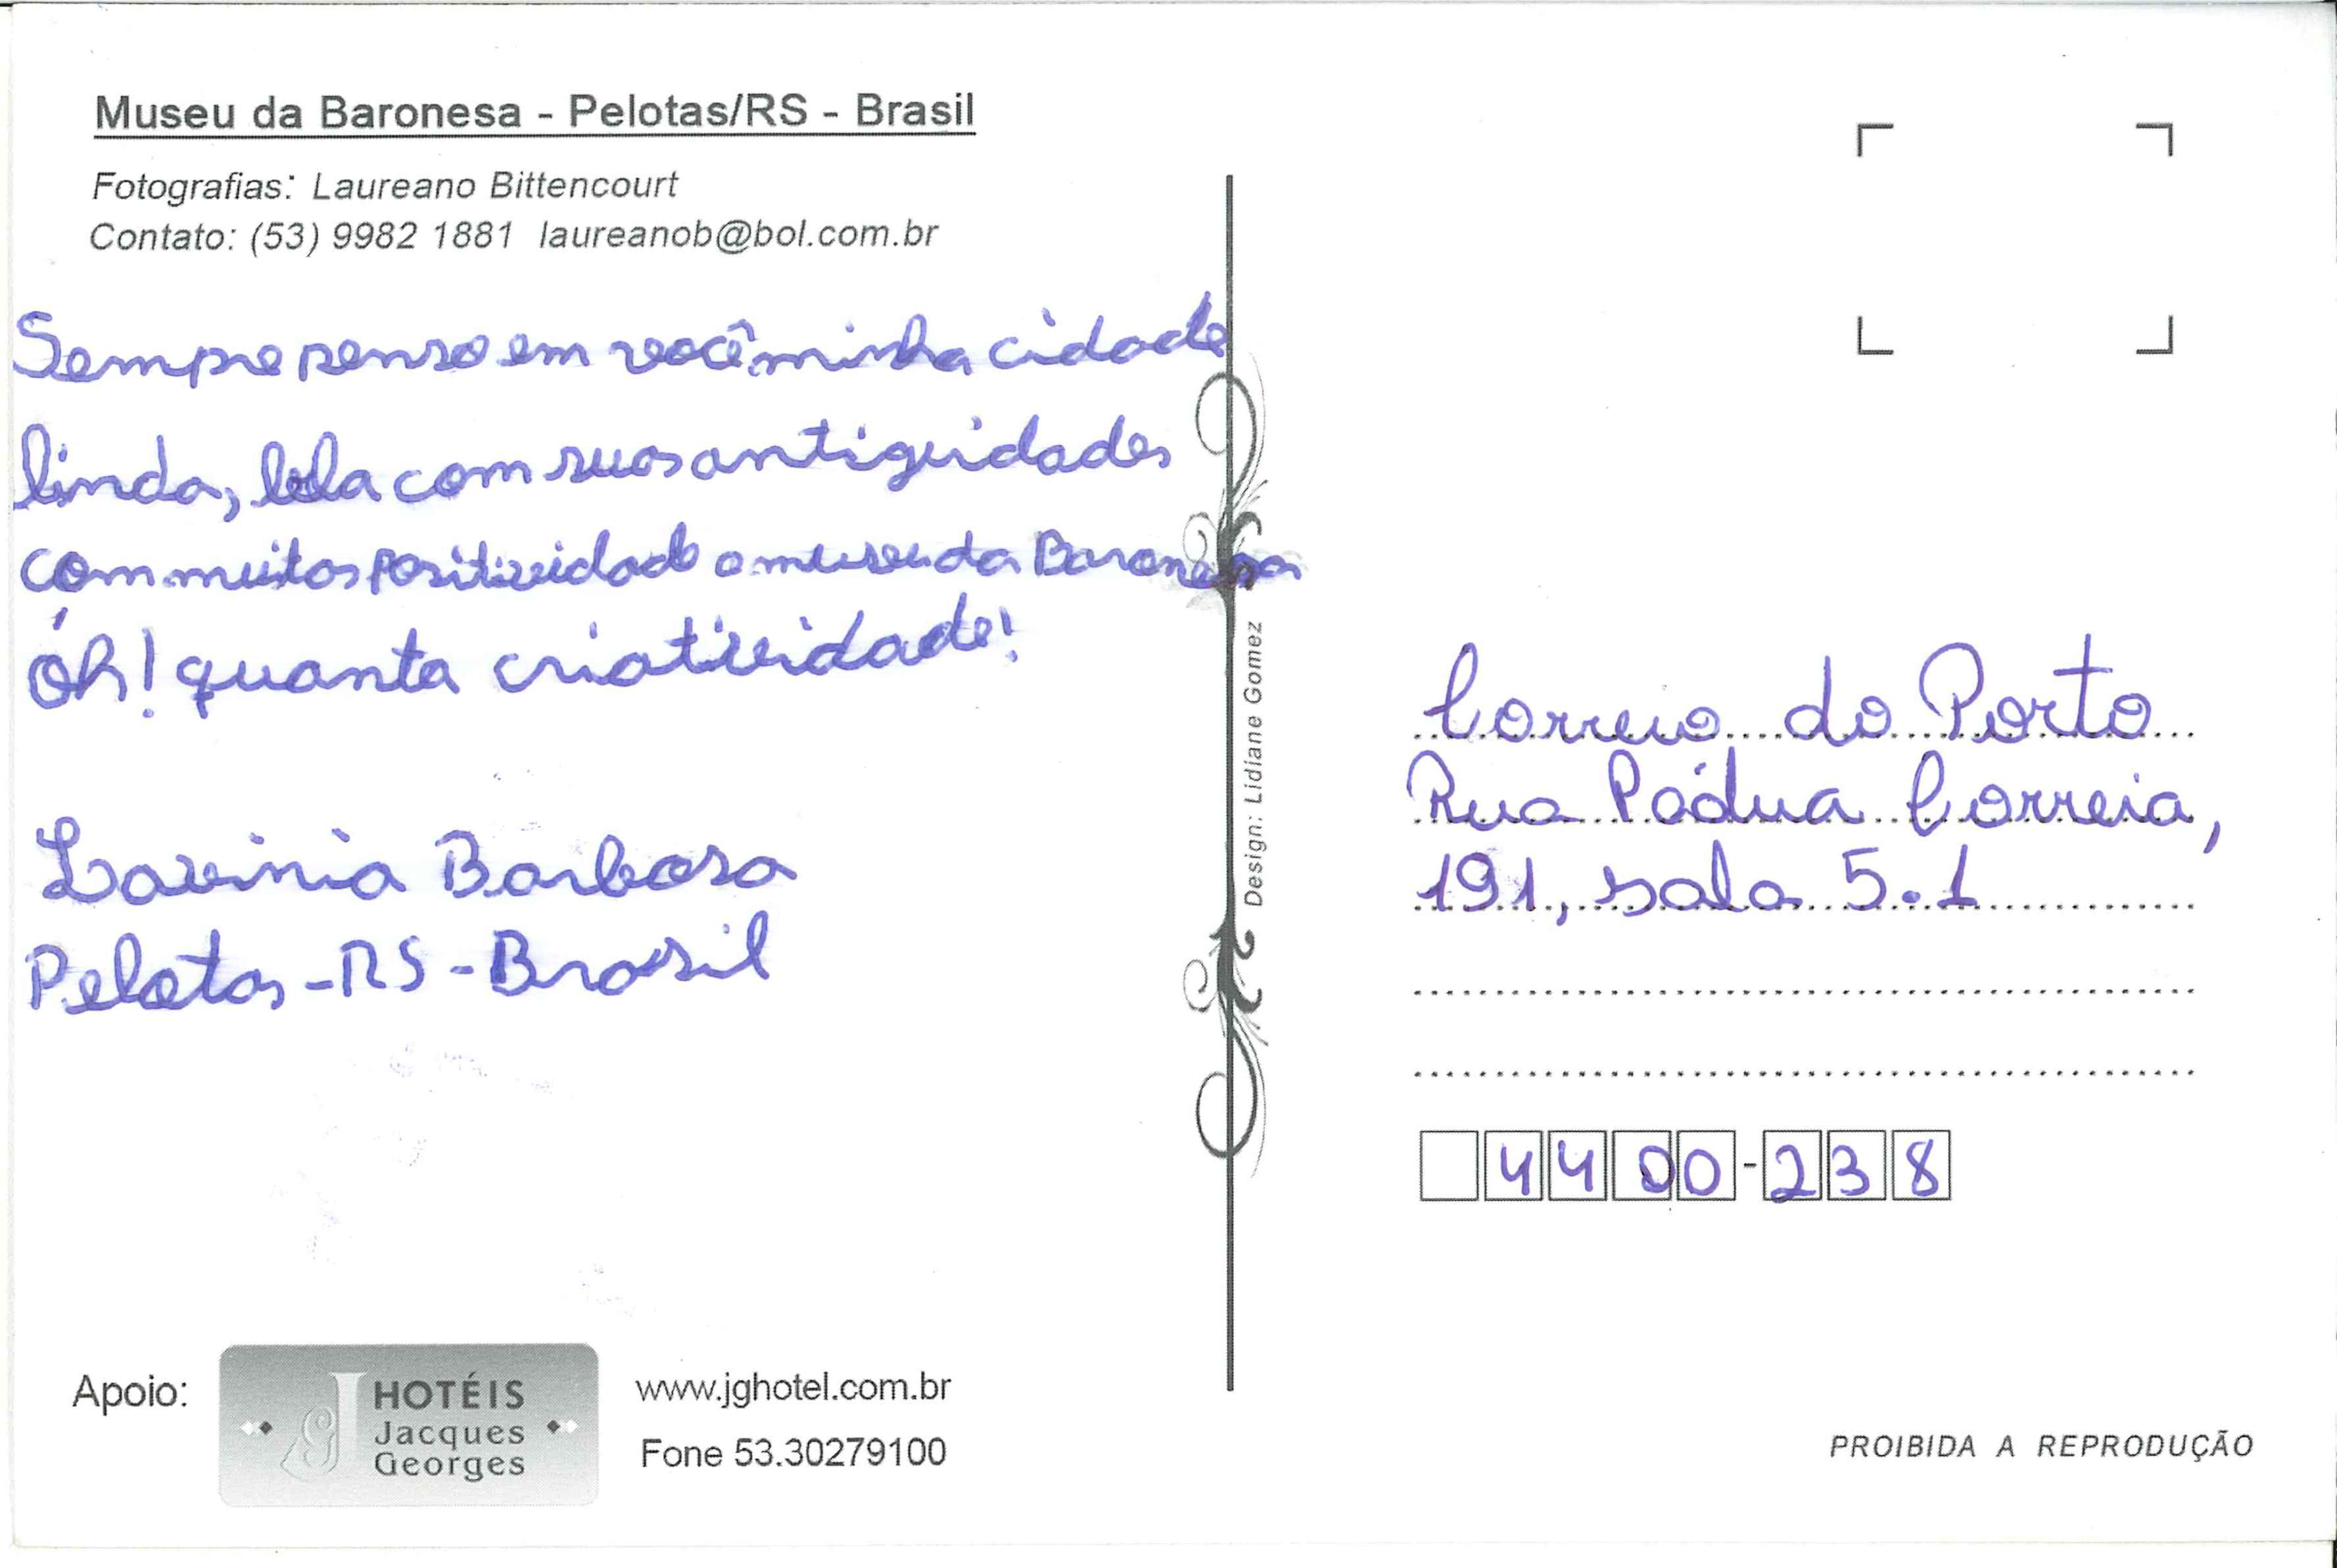 Museu da Baronesa - Pelotas/RS - Brasil
Fotografias: Laureano Bittencourt
Contato: (53) 9982 1881 laureanob@bol.com.br
Sempre penso em você minha cidade
linda, bela com suas antiguidades
com muitas positividade o museu da Baronesa
Óh! quanta criatividade!
Lavinia Barbosa
Pelotas - RS - Brasil
Apoio:
HOTÉIS
Jacques
Georges
www.jghotel.com.br
Fone 53.30279100
Design: Lidiane Gomez
Correio do Porto
Rua Pádua Correia,
191, sala 5.1
4400-238
PROIBIDA A REPRODUÇÃO